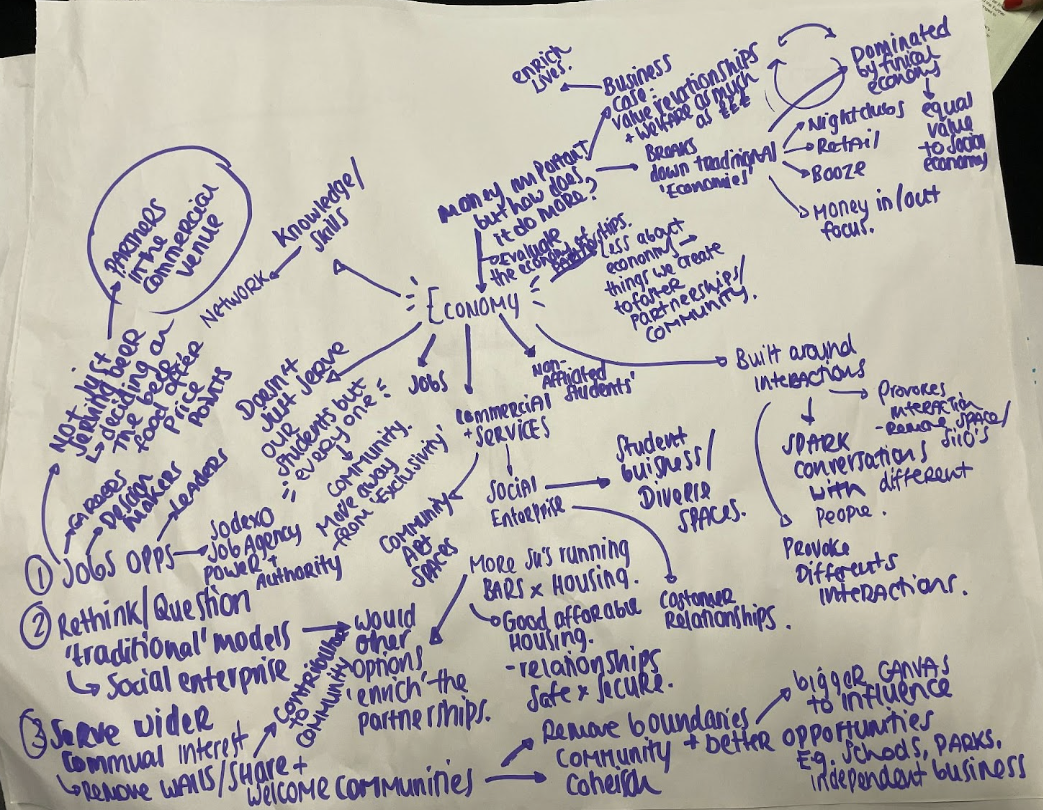 enrich
lives.
Business
case:
value relationships
+ welfare as much
as £££
Dominated
by finical
economy
equal
value
to social
economy
Money important
but how does
it do more?
Breaks
down traditional
'Economies'
Nightclubs
Retail
Booze
Money in/out
focus.
Evaluate
the economy of
partnerships.
Less about
economy
things we create
to foster
partnerships/
community.
Partners
in the
commercial
venue
Knowledge/
skills
Network
Economy
Not just
serving beer
deciding on
the beer
food offer
price
points
Doesn't
just serve
our
students but
everyone!
community.
Move away
from 'Exclusivity'
Jobs
Commercial
+ services
Non-
Affliated
students'
Built around
interactions
Provokes
interaction
- Remove space/
silo's
SPARK
conversations
with different
people.
Provoke
Differents
interactions.
Community
Art
spaces
Social
Enterprise
Student
buisness/
Diverse
spaces.
Customer
Relationships.
① Jobs opps
careers
Decision
makers
leaders
Sodexo
Job Agency
power +
Authority
② Rethink/Question
'traditional' models
Social enterprise
Would
other
options
'enrich' the
partnerships.
More SU's running
BARS x Housing.
Good afforable
Housing.
- relationships
safe x secure.
③ Serve wider
communal interest
Remove walls/share +
welcome communities
to
community
Remove boundaries
Community + better opportunities
bigger CANVAS
to influence
E.g. schools, parks.
independent business